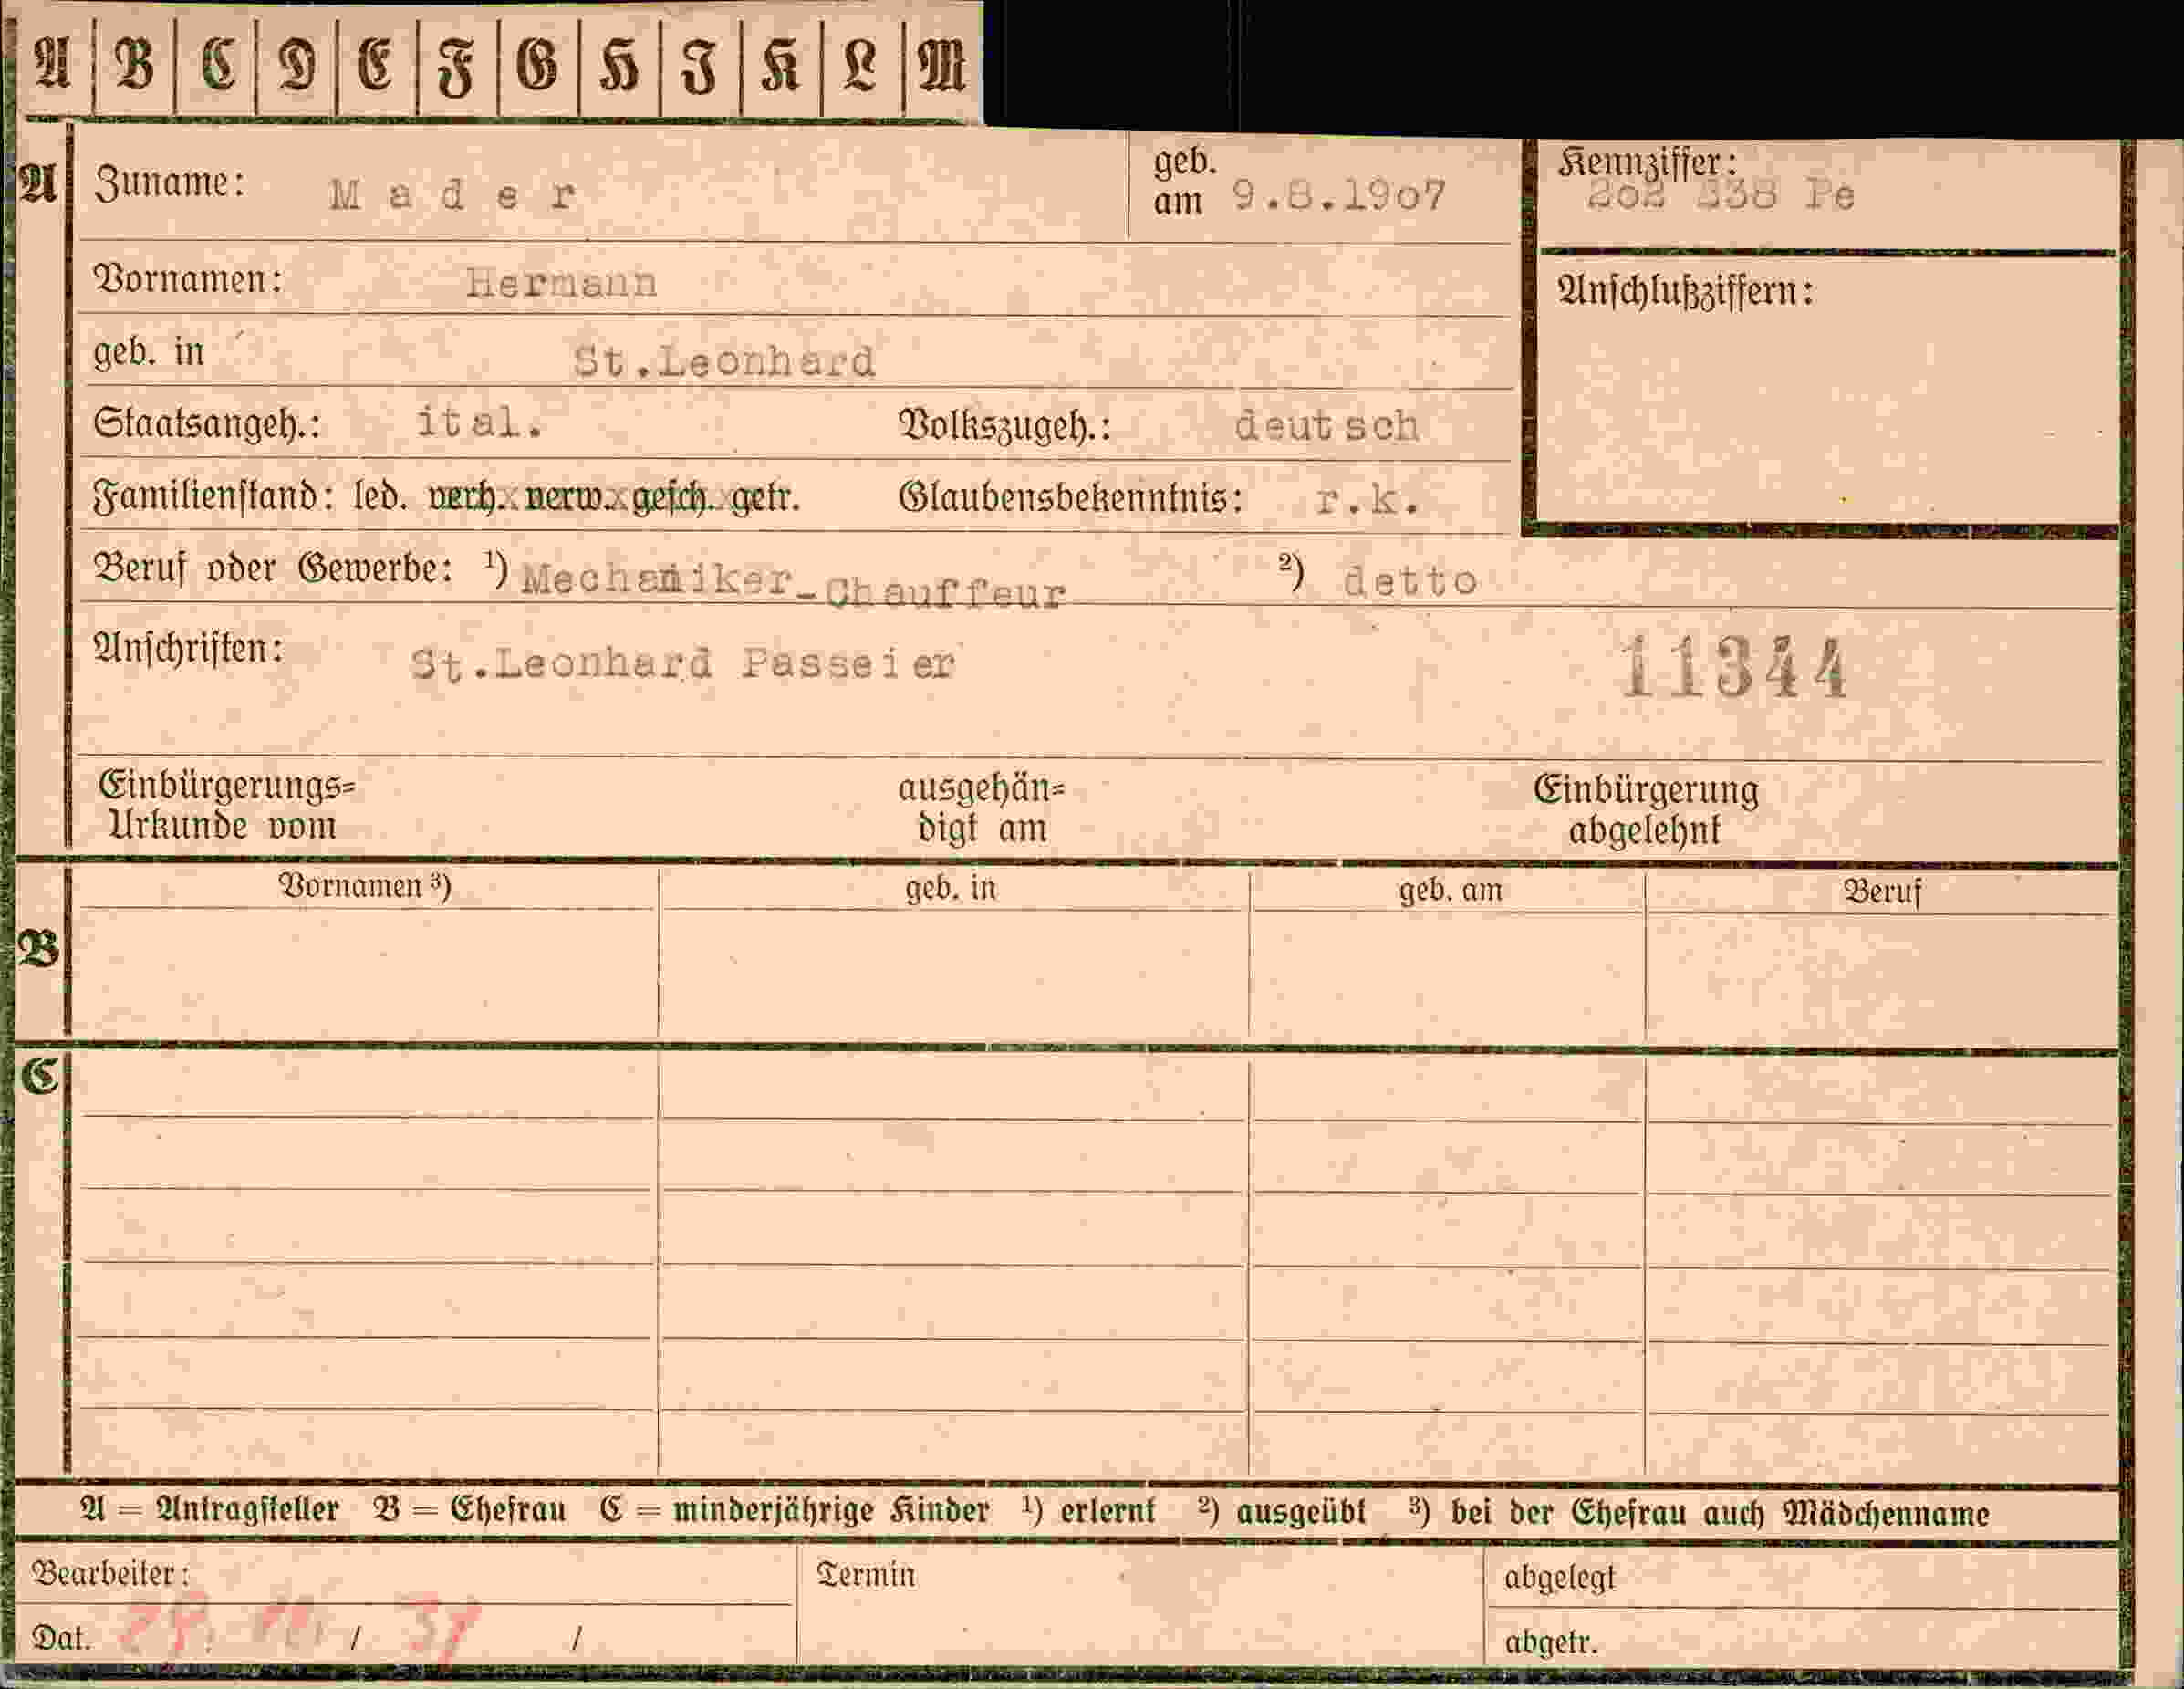 A B C D E F G H I K L M
A
Zuname: Mader
geb. am 9.8.1907
Kennziffer: 202 338 Pe
Vornamen: Hermann
Anschlußziffern:
geb. in St.Leonhard
Staatsangeh.: ital. Volkszugeh.: deutsch
Familienstand: led. verh. verw. gesch. getr. Glaubensbekenntnis: r.k.
Beruf oder Gewerbe: 1) Mechaniker-Chauffeur 2) detto
Anschriften: St.Leonhard Passeier 11344
Einbürgerungs= Urkunde vom
ausgehän= digt am
Einbürgerung abgelehnt
B
Vornamen 3) geb. in geb. am Beruf
C
A = Antragsteller B = Ehefrau C = minderjährige Kinder 1) erlernt 2) ausgeübt 3) bei der Ehefrau auch Mädchenname
Bearbeiter: Termin abgelegt
Dat. / / abgetr.